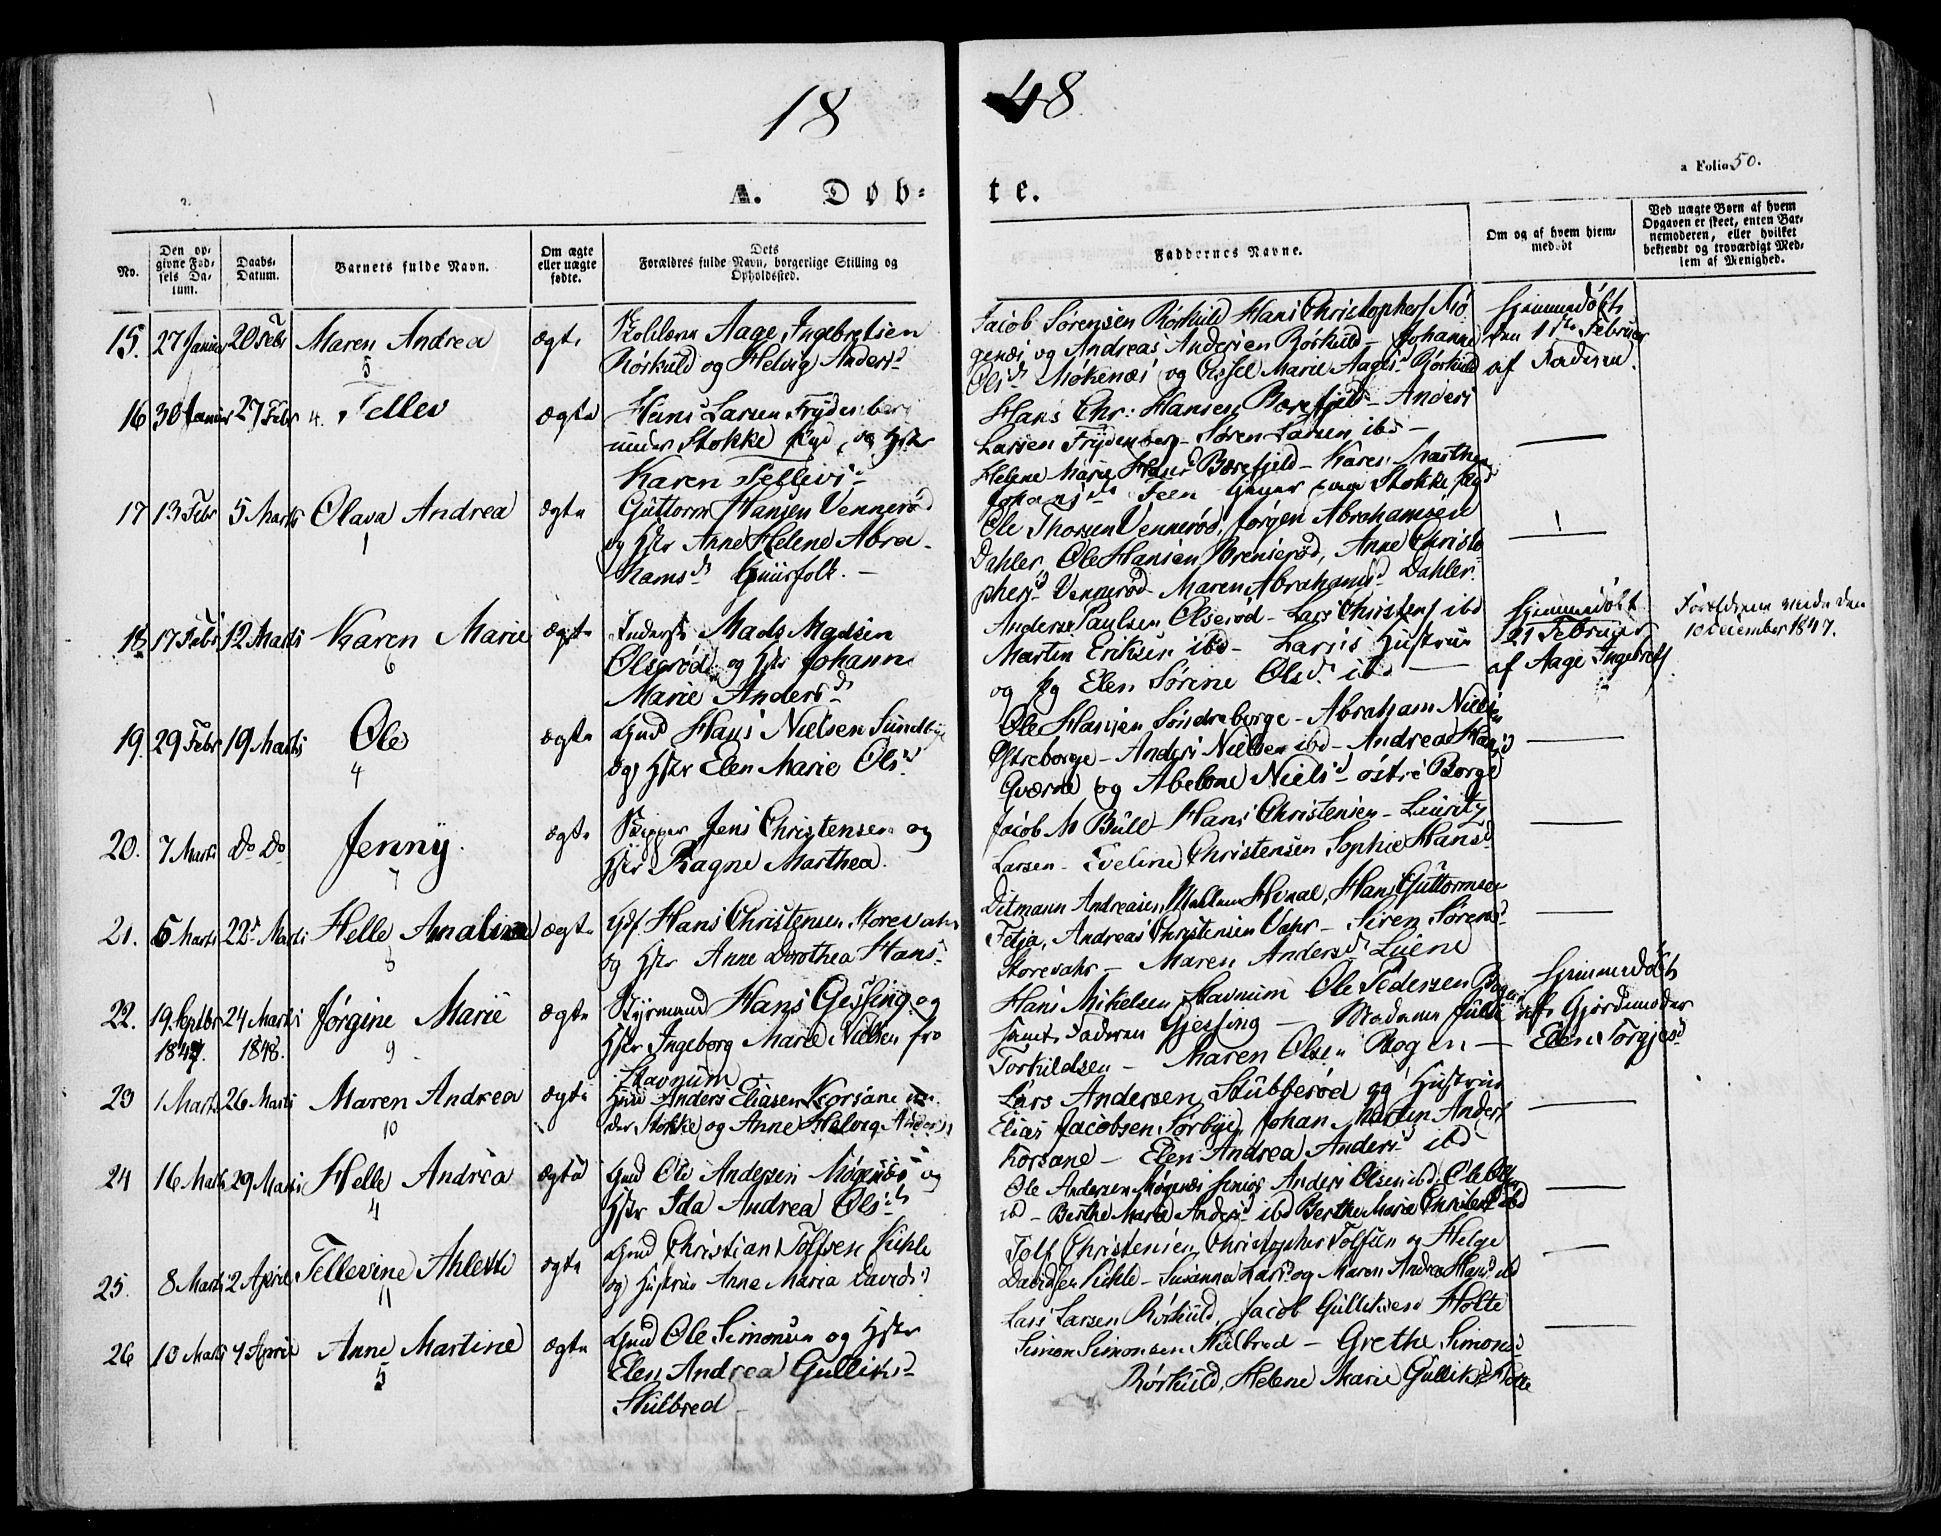 18
48
a Folio 50.
A. Døb-
te.
No.
Den op-
givne Fød-
sels Da-
tum.
Daabs-
Datum.
Barnets fulde Navn.
Om ægte
eller uægte
fødte.
Dets
Forældres fulde Navn, borgerlige Stilling og
Opholdssted.
Faddernes Navne.
Om og af hvem hjem-
medøbt
Ved uægte Børn af hvem
Opgaven er skeet, enten Bar-
nemoderen, eller hvilket
bekjendt og troværdigt Med-
lem af Menighed.
15. 27 Januar 20 Febr Maren Andrea ægte
5
Aage Ingebretsen
Rørkuld og Helvig Andersd
Jacob Sørensen Rørkuld Hans Christophers Mø
genæs og Andreas Andersen Rørkuld - Johanne
Olsd Møkenæs og Sissel Marie Aagesd Rørkuld
Hjemmedøbt
den 1ste Februar
af Faderen.
16 30 Januar 27 Febr 4. Tellev ægte
Hans Larsen Frydenberg
under Stokke og Hstr
Karen Tellevsd
Hans Chr: Hansen Borefjeld - Anders
Larsen Frydenberg - Søren Larsen ibd -
Helene Marie Borefjeld - Karen Marthe
17 13 Febr 5 Marts Olava Andrea ægte
1
Guttorm Hansen Vennerød
og Hstr Anne Helene Abra-
hamsd Huusfolk. -
Ole Thorsen Vennerød, Jørgen Abrahamsen
Dahler, Ole Hansen Brenserød, Anne Christo
phersd Vennerød - Maren Abrahamsd Dahler.
18 17 Febr 12 Marts Karen Marie ægte
6
Inderst Mads Madsen
Olserød og Hstr Johanne
Marie Andersd
Anders Paulsen Olserød - Lars Christens ibd
Martin Eriksen ibd - Larses Hustrue
og Pg Elen Sørine Olsd ibd -
Hjemmedøbt
21 Februar
af Aage Ingebrets.
Forældrene viede den
10 December 1847.
19. 29 Febr 19 Marts Ole ægte
4
Gmd Hans Nielsen Sundbye
og Hstr Elen Marie Olsd
Ole Hansen Søndreborge - Abraham Nielsen
Østreborge - Anders Nielsen ibd - Andrea Hansd
Gværne og Abelone Nielsd østre Borge
20. 7 Marts Do Do Jenny. ægte
7
Skipper Jens Christensen og
Hstr Ragne Marthea.
Jacob M Bull - Hans Christensen - Lauritz
Larsen - Eveline Christensen Sophie Hansd
21. 6 Marts 22d Marts Helle Analine ægte
8
Gdf. Hans Christensen Storevahr
og Hstr Anne Dorothea Hansd
Ditmann Andreasen Mellem Hvaal, Hans Guttormsen
Fetja, Andreas Christensen Vahr - Siren Sørensd
Storevahr - Maren Andersd Luene
22. 19. Septbr 24 Marts Jørgine Marie ægte
1847. 1848. 9
Styrmand Hans Gessing og
Hstr Ingeborg Marie Nielsen fra
Stavnum
Hans Mikelsen Stavnum Ole Pedersen Bogen
samt Faderen Gjessing - Madame Julie
Torkildsen - Maren Olsen Bogen -
Hjemmedøbt
af Gjordemoder
Elen Torgjesd
23 1 Marts 26 Marts Maren Andrea ægte
10
Hmd Anders Eliasen Korsane un-
der Stokke og Anne Helvig Andersd
Lars Andersen Stubberød og Hustrue
Elias Jacobsen Sørbye, Johan Martin Anders
Korsane - Elen Andrea Andersd ibd
24 16 Marts 29 Marts Helle Andrea ægte
4
Gmd Ole Andersen Møgenæs og
Hstr Ida Andrea Olsd
Ole Andersen Møgenæs senior Anders Olsen ibd, Ole Olsen
ibd - Berthe Marie Andersd ibd Berthe Marie Christensd ibd
25. 8 Marts 2 April Tellevine Ahlette ægte
11
Gmd Christian Tolfsen Pihle
og Hustrue Anne Maria Davidsd
Tolf Christensen, Christopher Tolfsen og Helge
Davidsen Pihle - Susanna Larsd og Maren Andrea Hansd ibd
26 10 Marts 4 April Anne Martine ægte
5
Gmd Ole Simonsen og Hstr
Elen Andrea Gulliksd
Skulbred -
Lars Larsen Rørkuld, Jacob Gulliksen Holte
Simon Simonsen Skulbred - Grethe Simonsd
Rørkuld, Helene Marie Gulliksd Holte